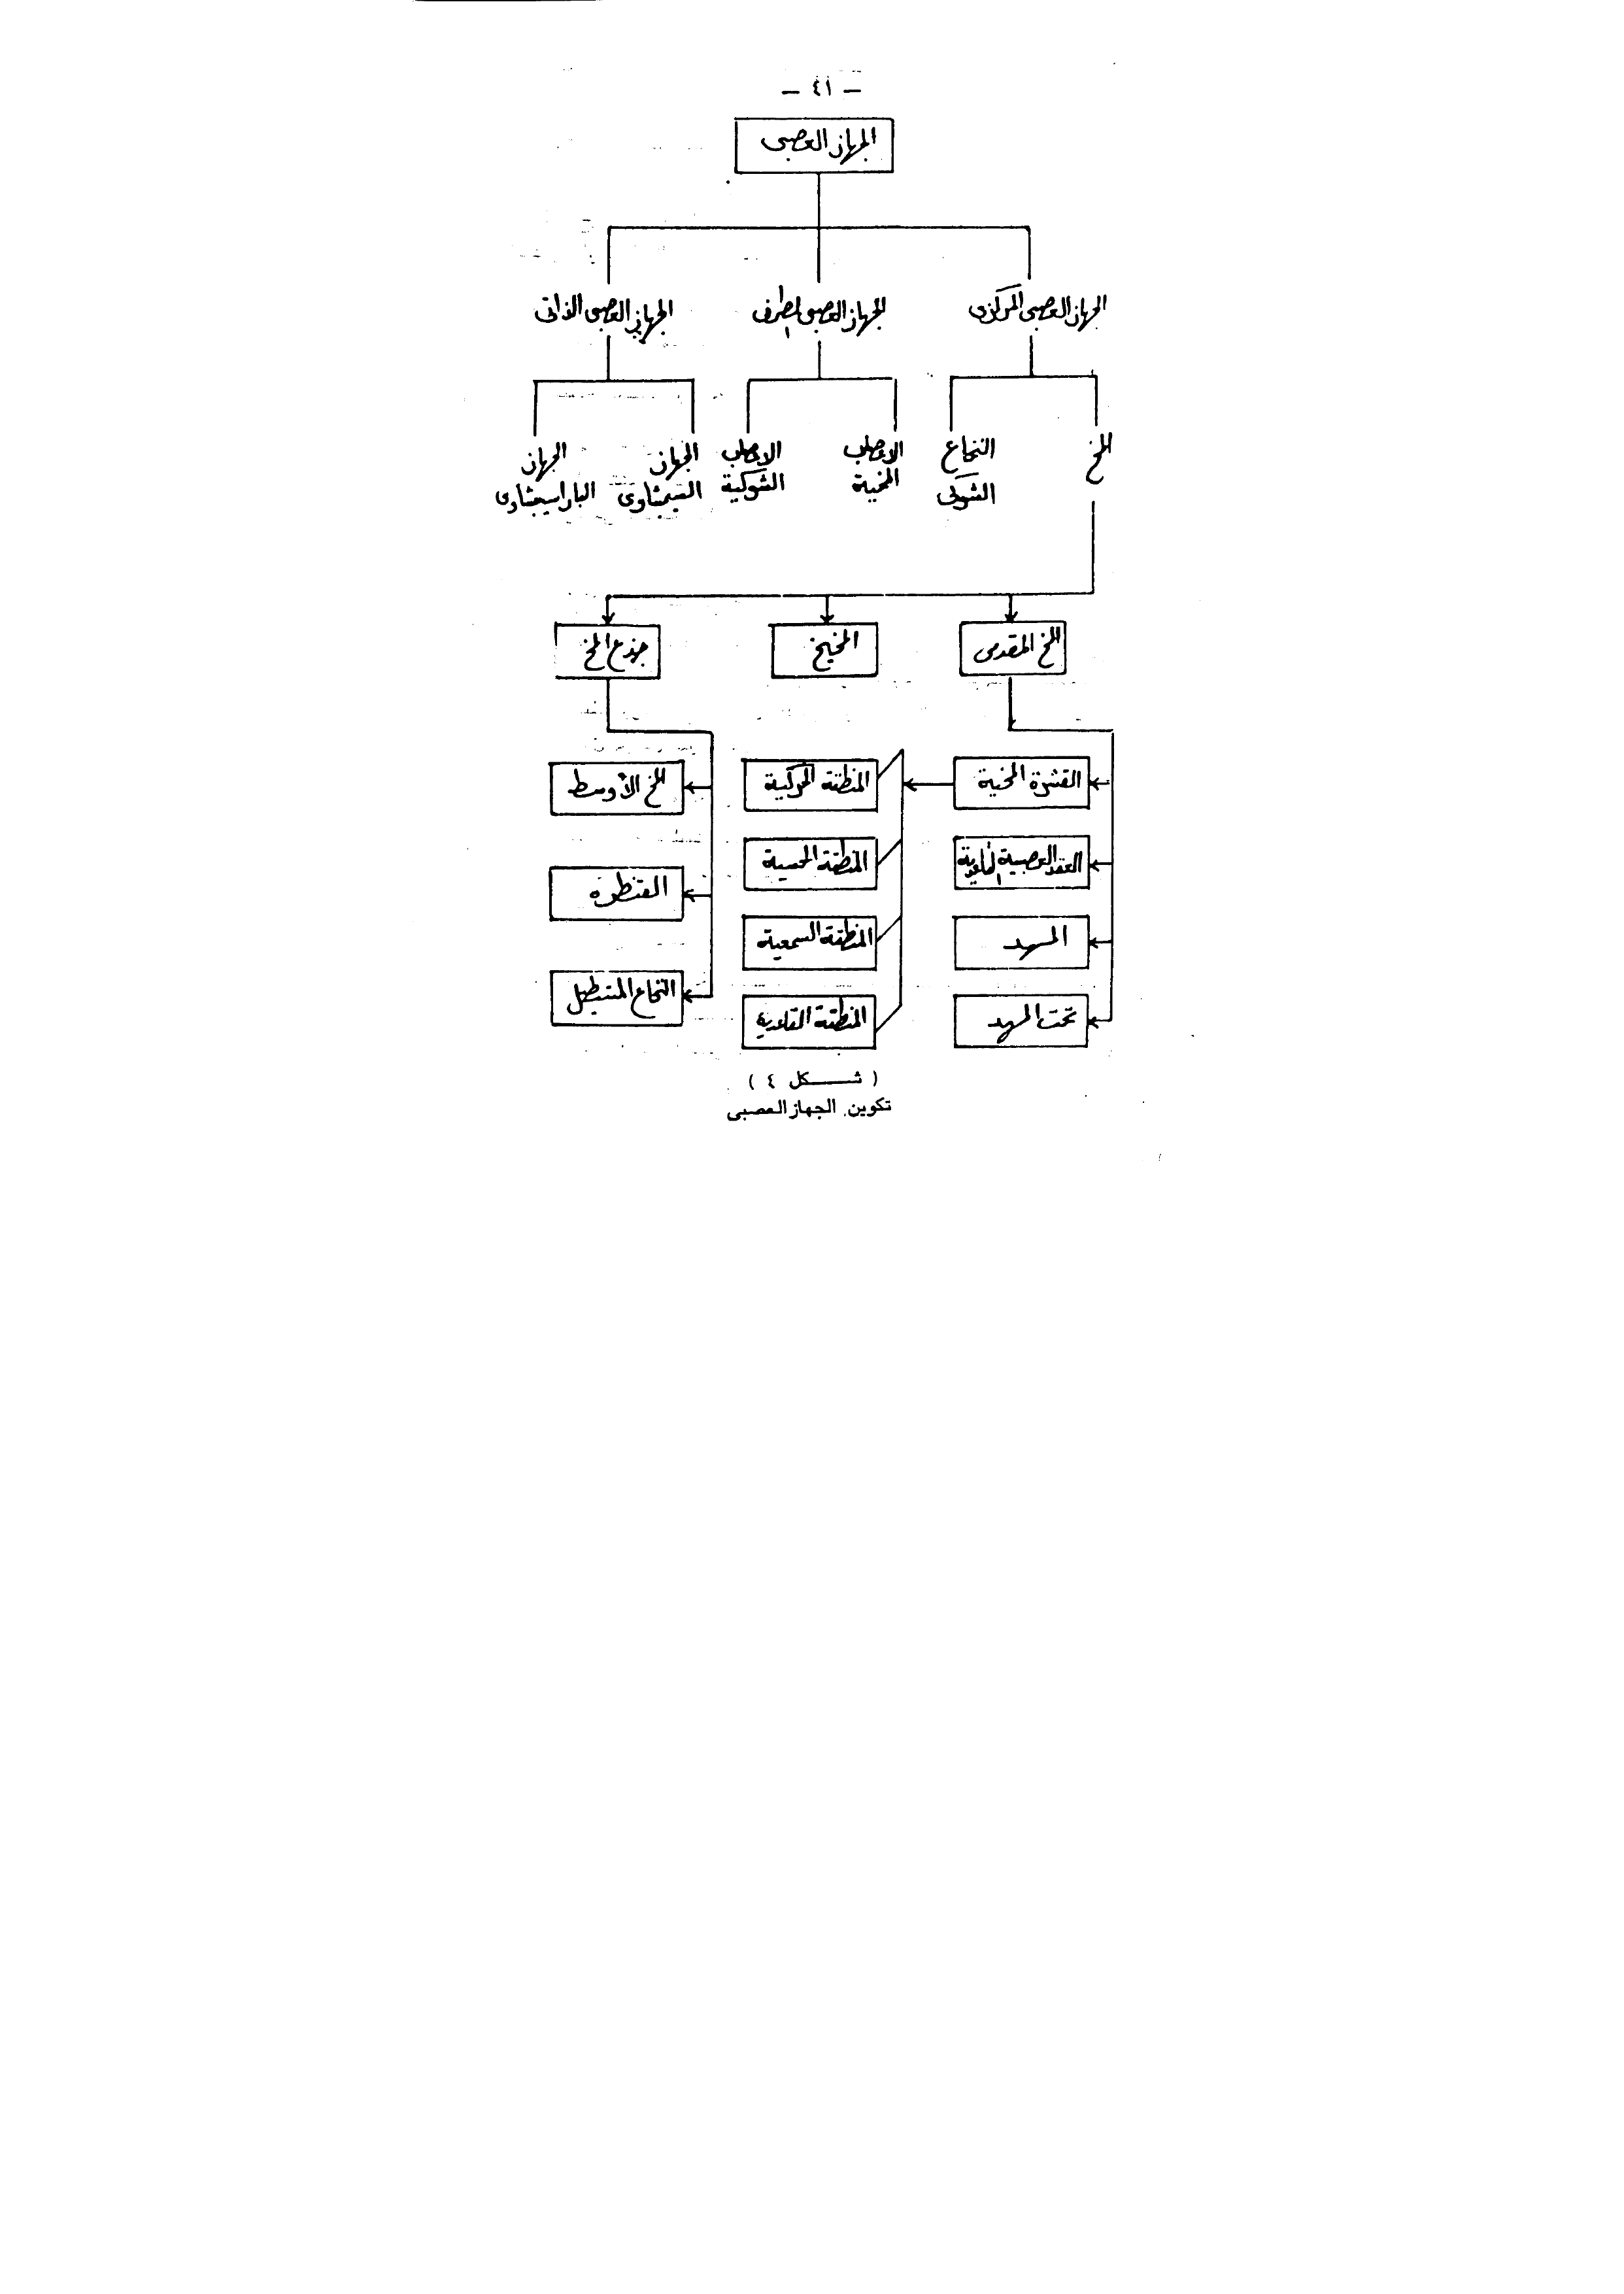 — ٤١ —
الجهاز العصبى
الجهاز العصبى المركزى
الجهاز العصبى الطرفى
الجهاز العصبى الذاتى
المخ
النخاع
الشوكى
الاعصاب
المخية
الاعصاب
الشوكية
الجهاز
السيمبثاوى
الجهاز
الباراسيمبثاوى
المخ المقدمى
المخيخ
جذع المخ
القشرة المخية
العقد العصبية القاعدية
المهد
تحت المهد
المنطقة الحركية
المنطقة الحسية
المنطقة السمعية
المنطقة القاعدية
المخ الأوسط
القنطرة
النخاع المستطيل
( شــــكل ٤ )
تكوين الجهاز العصبى